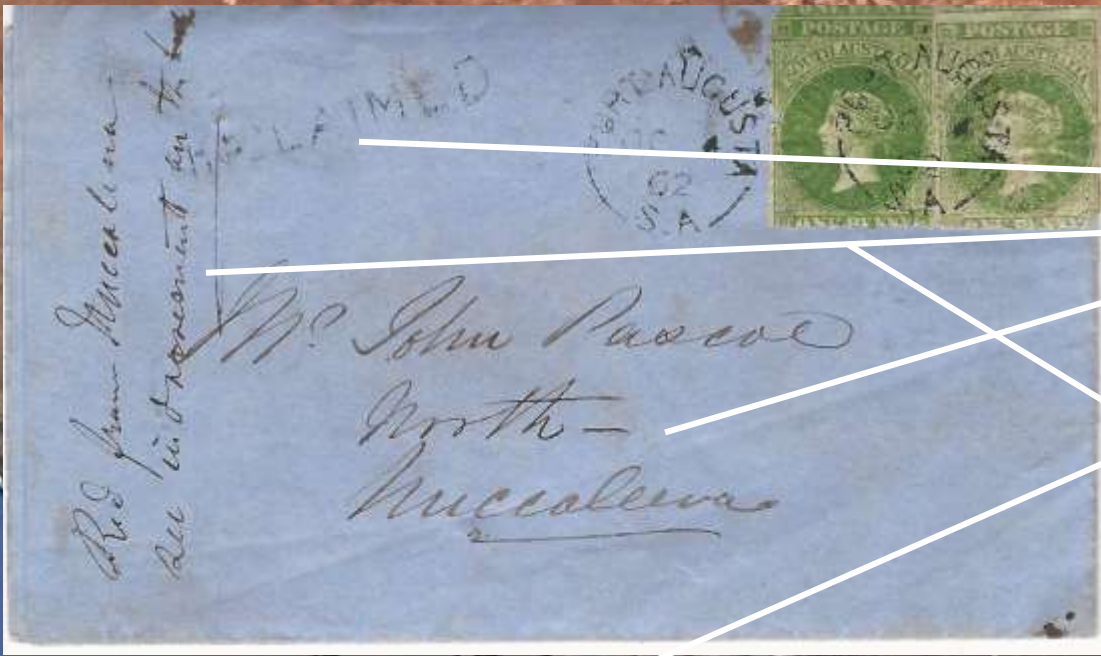 Recd from Nuccaleena
see indorsement on the
UNCLAIMED
PORT AUGUSTA
62
S.A
POSTAGE
SOUTH AUSTRALIA
POSTAGE
SOUTH AUSTRALIA
AUGUSTA
Mr John Pascoe
North –
Nuccaleena